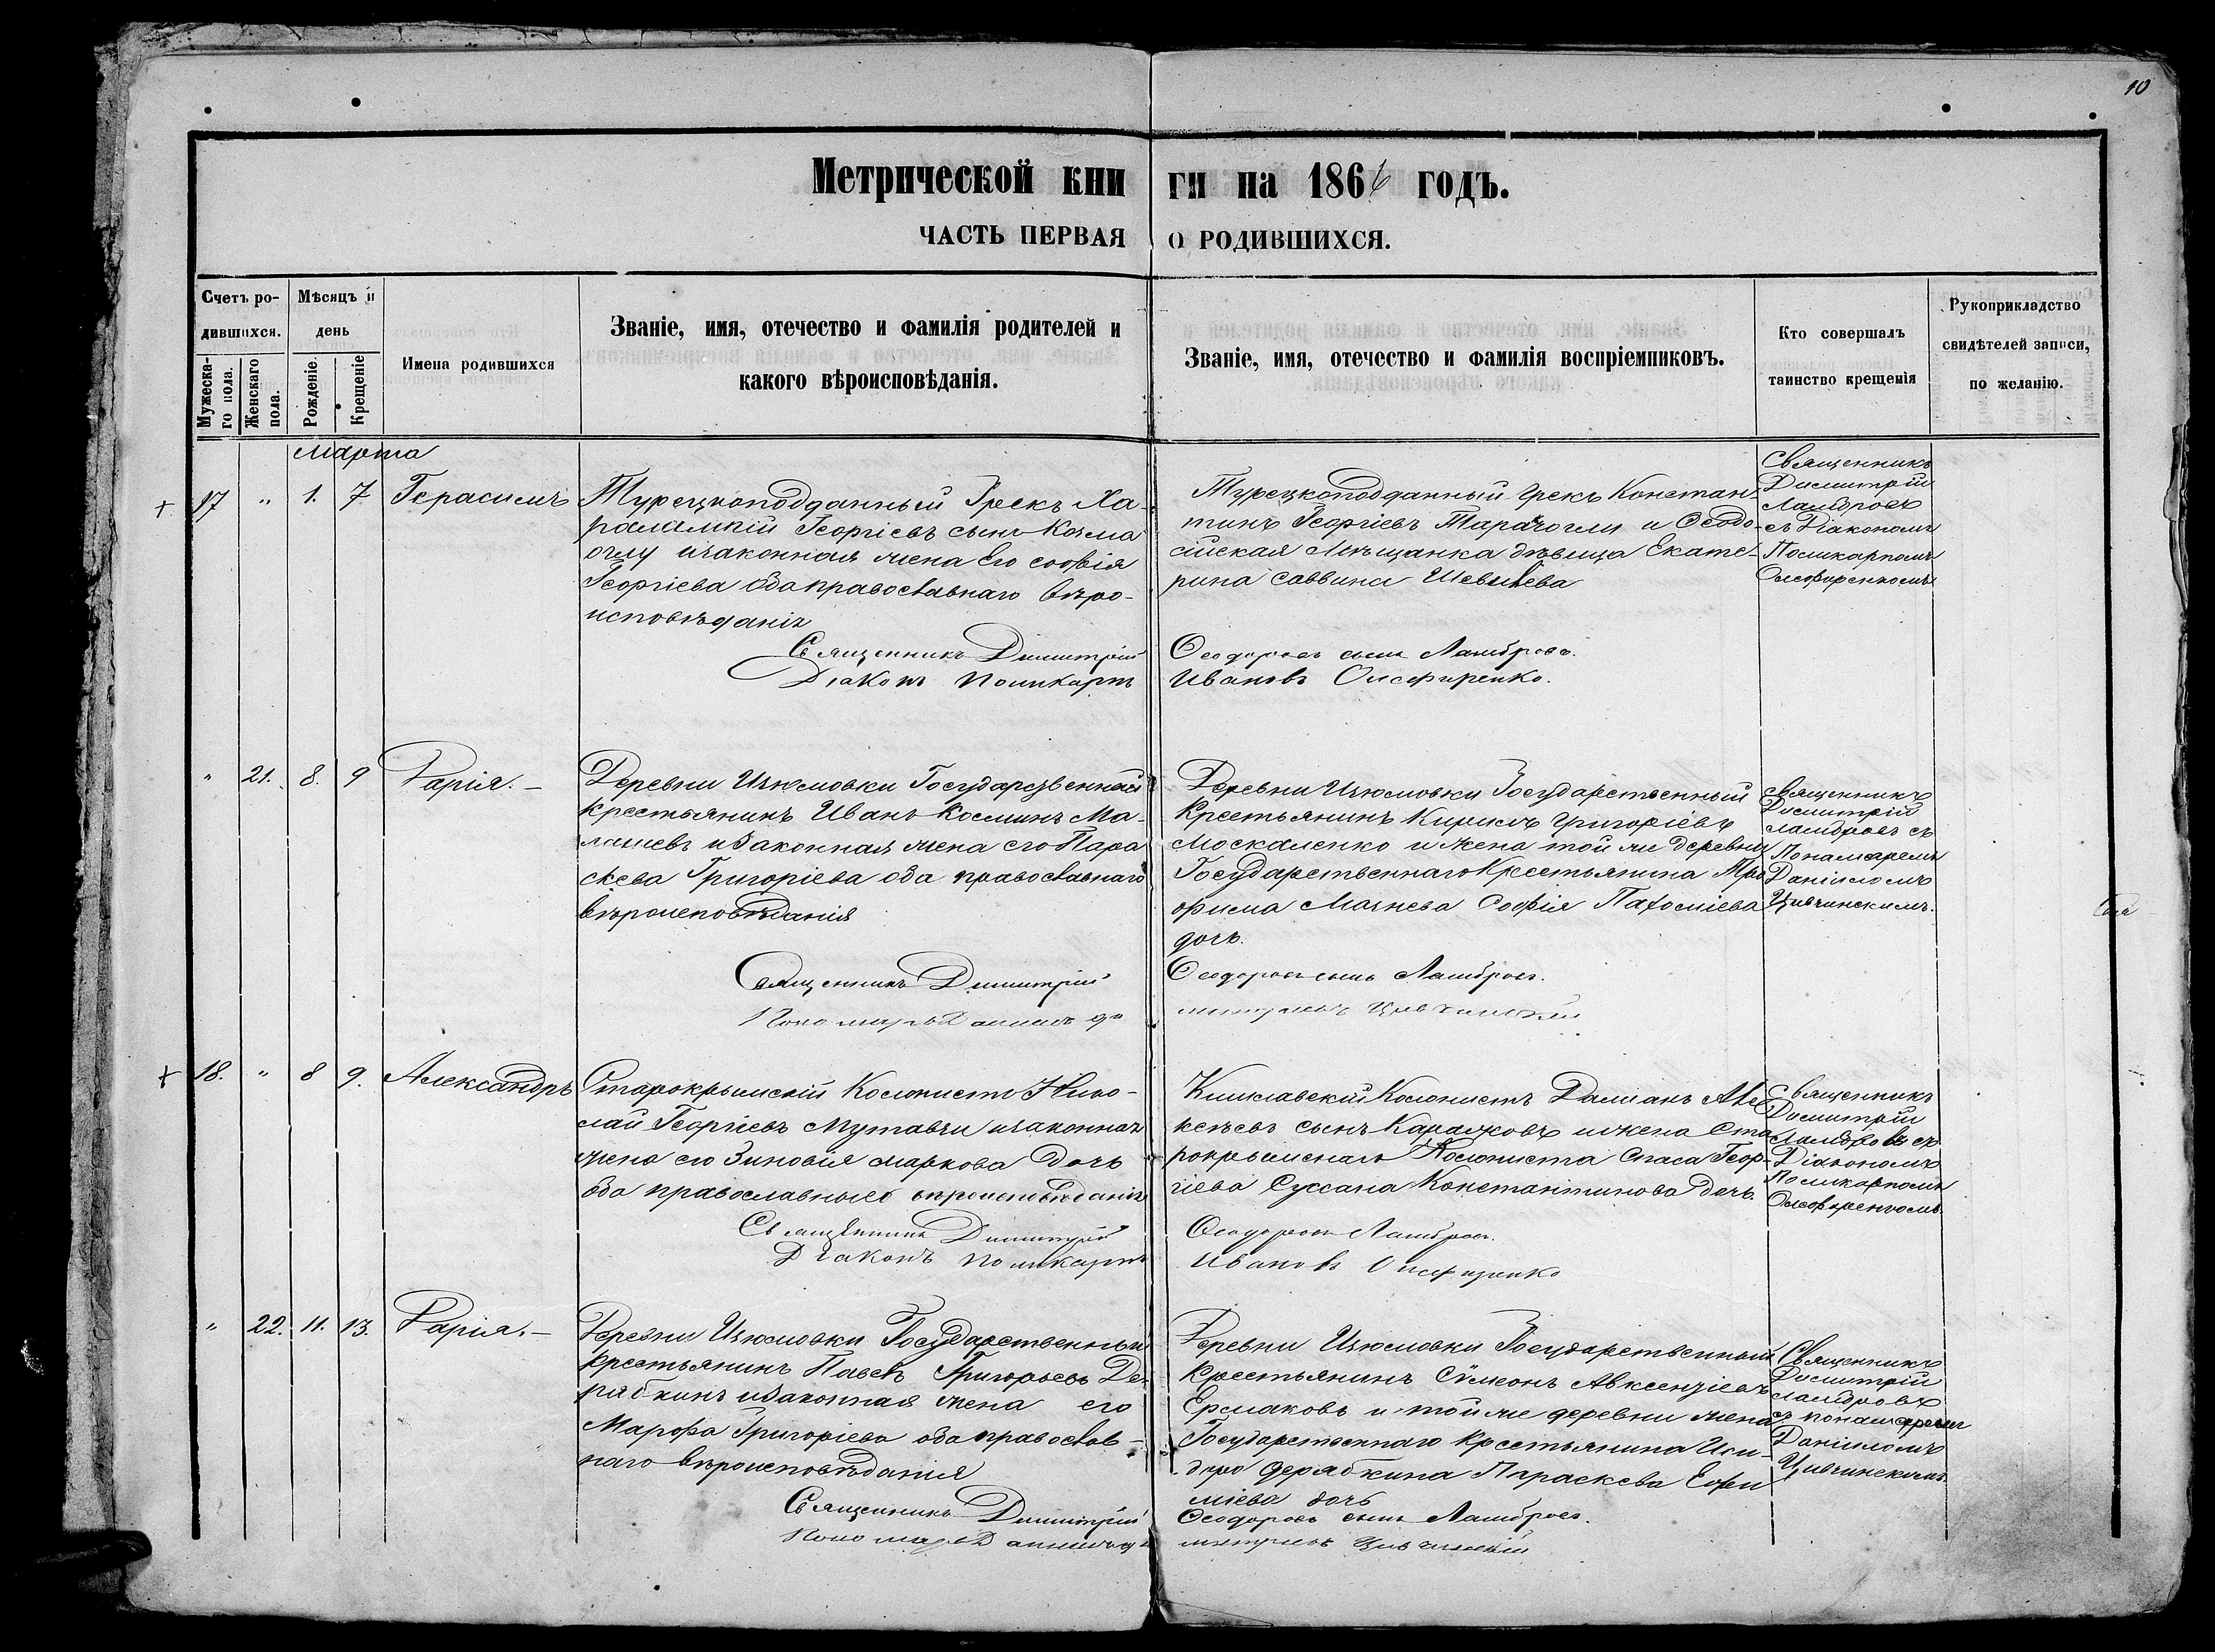 10
Метрической кни ги на 1866 годъ.
ЧАСТЬ ПЕРВАЯ О РОДИВШИХСЯ.
Счетъ ро-
дившихся.
Мужеска-
го пола.
Женскаго
пола.
Мѣсяцъ и
день
Рожденіе.
Крещеніе
Имена родившихся
Званіе, имя, отечество и фамилія родителей и
какого вѣроисповѣданія.
Званіе, имя, отечество и фамилія воспріемниковъ.
Кто совершалъ
таинство крещенія
Рукоприкладство
свидѣтелей записи,
по желанію.
Марта
17 " 1. 7 Герасимъ
Турецкоподданный Грекъ Ха-
ралампій Георгіевъ сынъ Козма
оглу изаконная жена Его софія
Георгіева Оба православнаго вѣро-
исповѣданія
Священникъ Димитрій
Діаконъ Поликарпъ
Турецкоподданный грекъ Констан-
тинъ Георгіевъ и Ѳеодо-
сійская Мѣщанка дѣвица Екате-
рина саввина
Ѳеодоровъ сынъ Ламбровъ.
Ивановъ Олефиренко.
Священникъ
Димитрій
Ламбровъ
съ Діакономъ
Поликарпомъ
Олефиренкомъ
" 21. 8. 9 Дарія. —
Деревни Изюмовки Государственный
Крестьянинъ Иванъ Косминъ Ма-
изаконная жена его Пара
скева Григоріева оба православнаго
вѣроисповѣданія
Священникъ Димитрій
Пономарь Даниилъ
Деревни Изюмовки Государственный
Крестьянинъ Кирилъ Григоріевъ
Москаленко и жена той же деревни
Государственнаго Крестьянина Тро
фима Софія Пахоміева
дочь.
Ѳеодоровъ сынъ Ламбровъ.
священникъ
Димитрій
Ламбровъ съ
Пономаремъ
Даніиломъ
Цивчинскимъ.
18. " 8 9. Александръ
Старокрымскій Колонистъ Нико-
лай Георгіевъ Мутавчи изаконная
жена его Зиновія маркова дочь
оба православнаго вѣроисповѣданія
Священникъ Димитрій
Діаконъ Поликарпъ
Кишлавскій Колонистъ Даміанъ Але
ксѣевъ сынъ ижена Ста
рокрымскаго Колониста Спаса Геор-
гіева Сусана Константинова дочь.
Ѳеодоровъ Ламбровъ.
Ивановъ Олефиренко
Священникъ
Димитрій
Ламбровъ съ
Діакономъ
Поликарпомъ
Олефиренкомъ.
" 22. 11. 13. Дарія. —
Деревни Изюмовки Государственный
крестьянинъ Павелъ Григорьевъ Де-
рябкинъ изаконная жена его
Марфа Григоріева оба православ-
наго вѣроисповѣданія
Священникъ Димитрій
Пономарь Даниилъ
Деревни Изюмовки Государственный
Крестьянинъ Сѵмеонъ Авксентіевъ
Ермаковъ и той же деревни жена
Государственнаго Крестьянина Иси-
дора Дерябкина Параскева Ефи
міева дочь
Ѳеодоровъ сынъ Ламбровъ.
Священникъ
Димитрій
Ламбровъ
съ пономаремъ
Даніиломъ
Цивчинскимъ